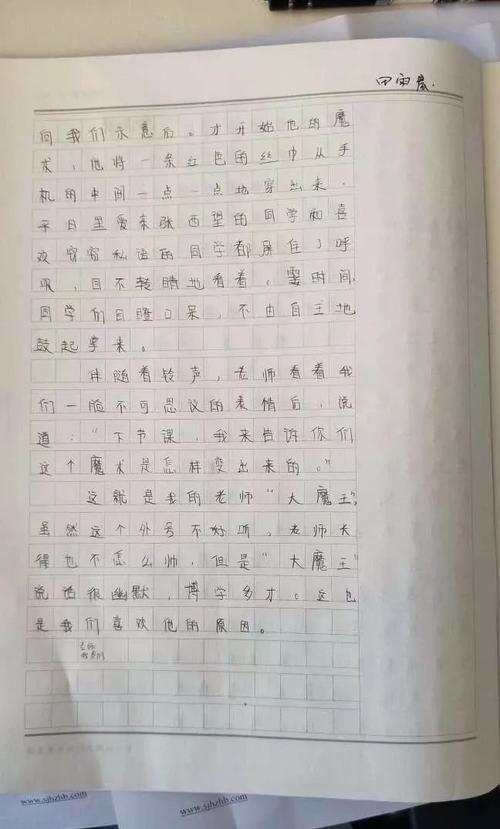 田雨
向我们示意后。才开始他的魔
术，他将一条红色的丝巾从手
机的中间一点一点地穿出来。
平日里爱东张西望的同学和喜
欢窃窃私语的同学都屏住了呼
吸，目不转睛地看着，霎时间，
同学们目瞪口呆，不由自主地
鼓起掌来。
伴随着铃声，老师看着我
们一脸不可思议的表情后，说
道："下节课，我来告诉你们
这个魔术是怎样变出来的。"
这就是我的老师"大魔王"，
虽然这个外号不好听，老师长
得也不怎么帅，但是"大魔王"
说话很幽默，博学多才。这也
是我们喜欢他的原因。
老师
www.sjhzhb.com
www.sjhzhb.com